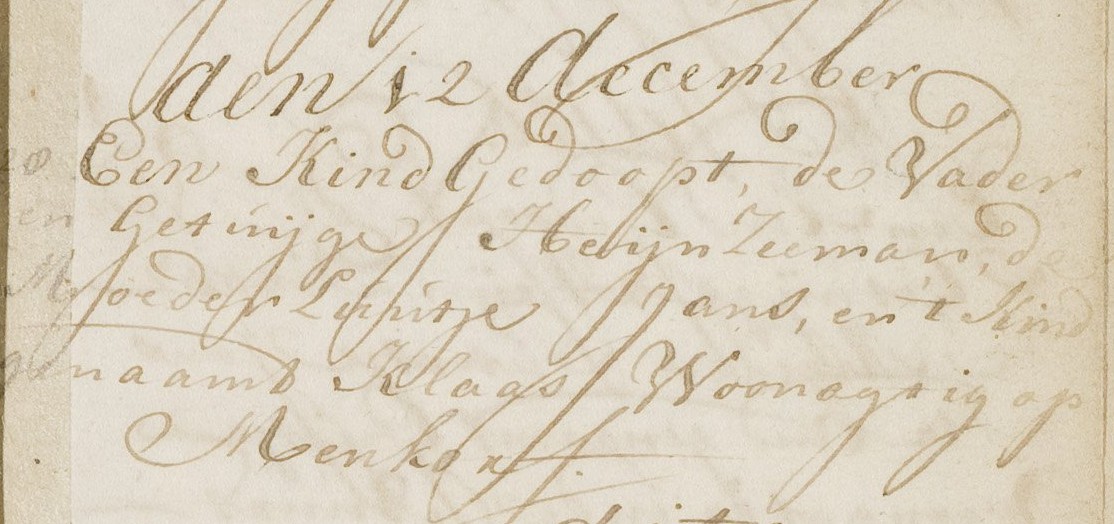 den 12 december
Een Kind Gedoopt, de Vader
Getuijge Heijn Zeeman, de
Moeder Luutje Jans, en 't Kind
genaamt Klaas Woonagtig op
Menkon